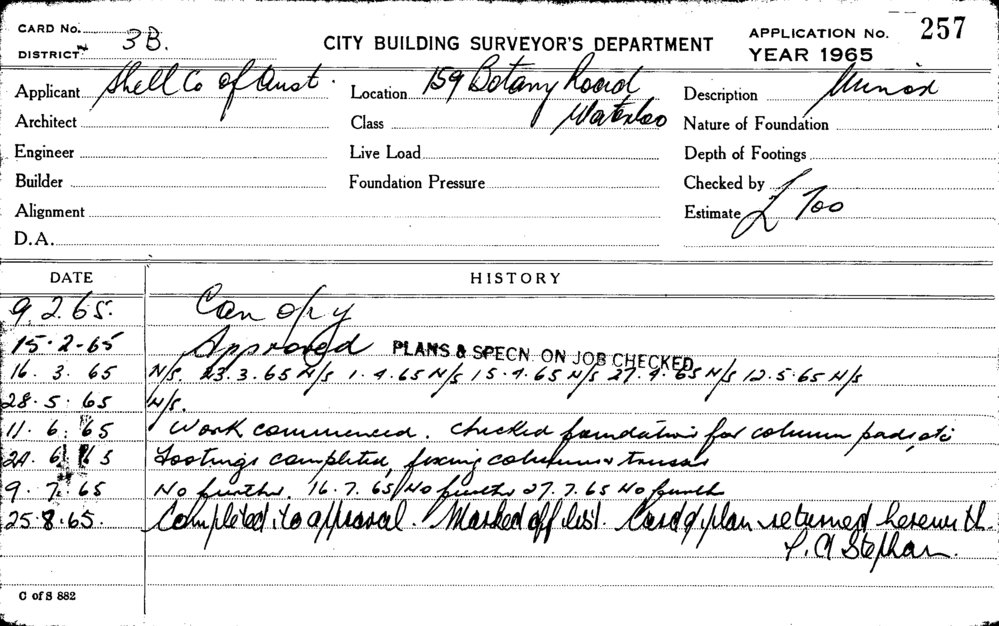 CARD No.
DISTRICT 3B.
CITY BUILDING SURVEYOR'S DEPARTMENT
APPLICATION No. 257
YEAR 1965
Applicant Shell Co of Aust.
Location 159 Botany Road
Waterloo
Description Minor
Architect
Class
Nature of Foundation
Engineer
Live Load
Depth of Footings
Builder
Foundation Pressure
Checked by
Alignment
Estimate £ 700
D.A.
DATE HISTORY
9.2.65. Canopy
15.2.65 Approved PLANS & SPECN. ON JOB CHECKED
16.3.65 N/S. 23.3.65 N/S 1.4.65 N/S 15.4.65 N/S 27.4.65 N/S 12.5.65 N/S
28.5.65 N/S.
11.6.65 Work commenced. Checked foundations for column pads etc
24.6.65 Footings completed, fixing columns & trusses
9.7.65 No further. 16.7.65 No further 27.7.65 No further
25.8.65. Completed to approval. Marked off list. Card & plan returned herewith.
C of S 882